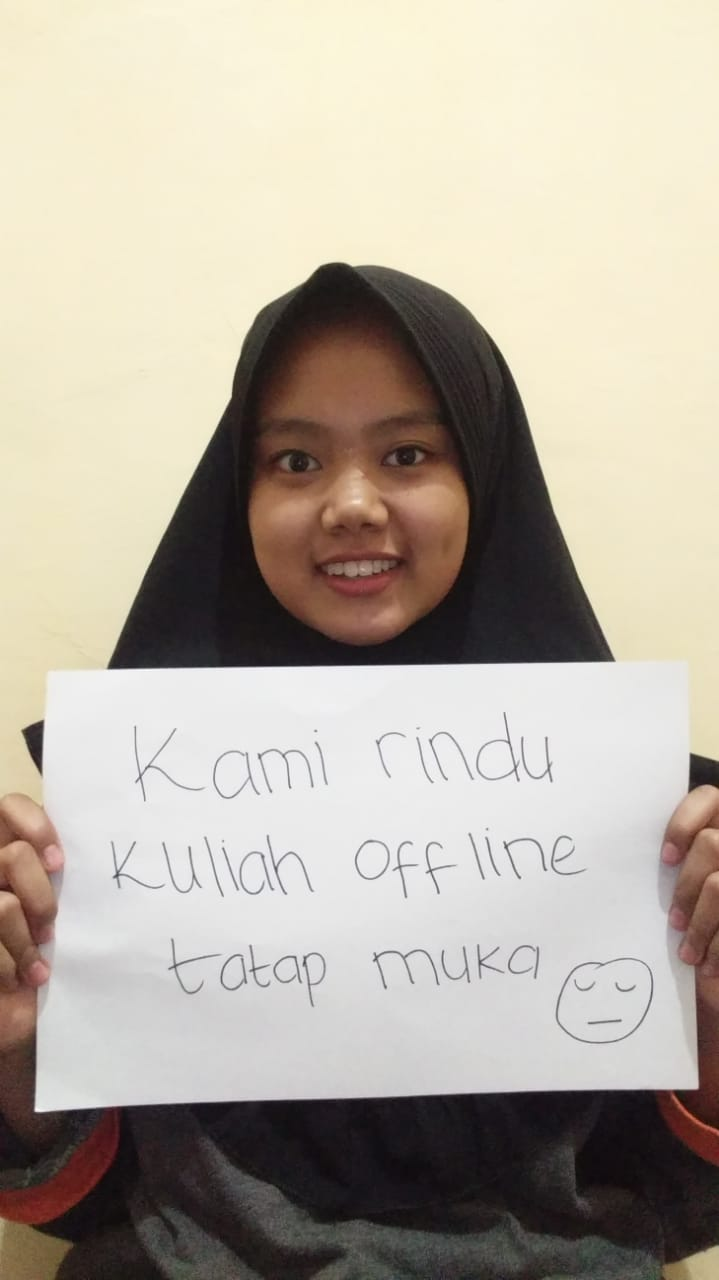 Kami rindu
kuliah offline
tatap muka